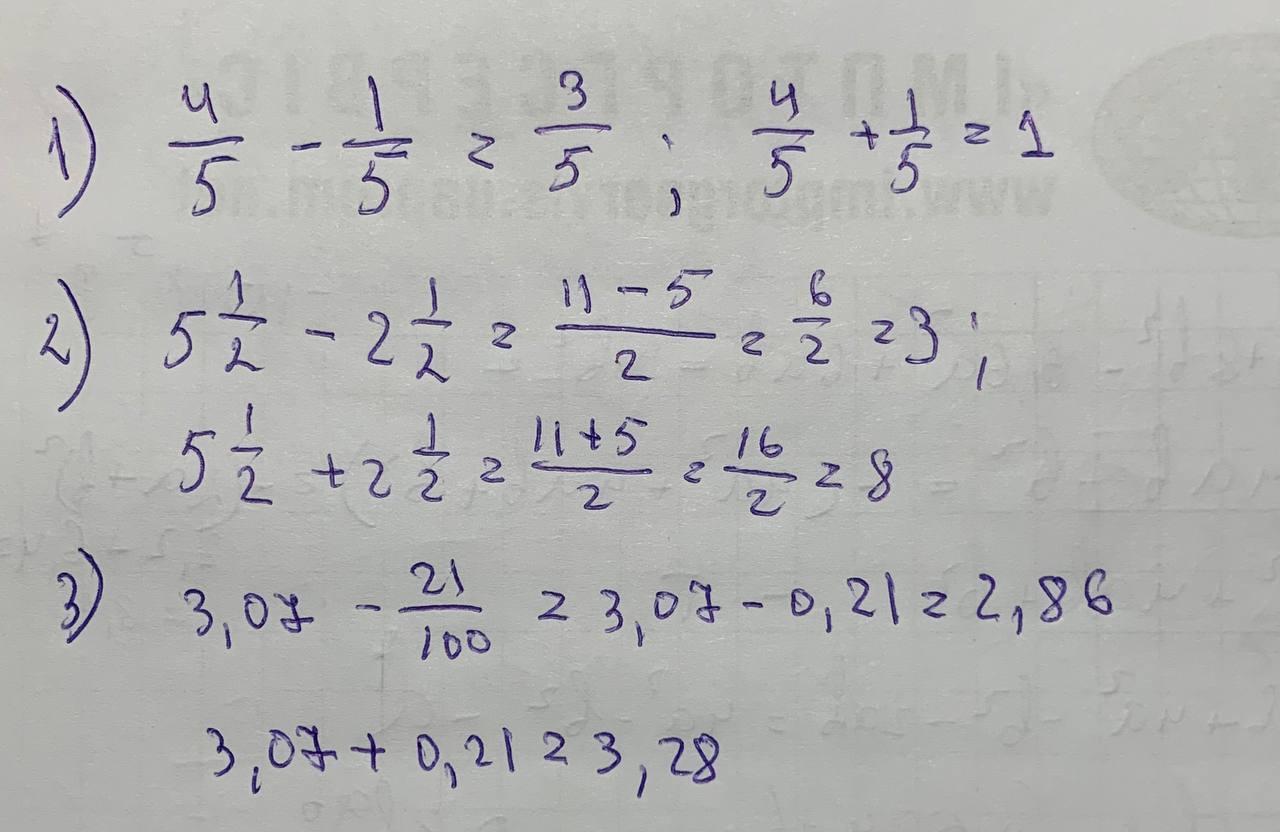 1) 4/5 - 1/5 = 3/5 ; 4/5 + 1/5 = 1
2) 5 1/2 - 2 1/2 = (11 - 5)/2 = 6/2 = 3 ;
5 1/2 + 2 1/2 = (11 + 5)/2 = 16/2 = 8
3) 3,07 - 21/100 = 3,07 - 0,21 = 2,86
3,07 + 0,21 = 3,28